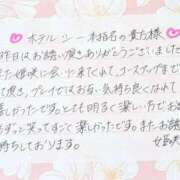 ホテル シー 本指名の貴方様
昨日はお誘い頂きありがとうございました
また姫咲に会いに来てくれて、コースアップまで
して頂き、プレイではお互い、気持ち良くなれて
嬉しかったです。とても明るく楽しい方でお話
もずっと笑ってすごく楽しかったです。またお誘い
お待ちしております。
姫咲